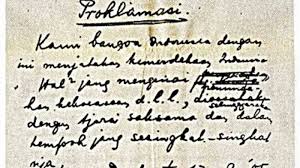 Proklamasi.
Kami bangsa Indonesia dengan
ini menjatakan kemerdekaan Indonesia
Hal² jang mengenai
kekoeasaan d.l.l.,
dengan tjara saksama dan dalam
tempoh jang sesingkat-singkat
nja